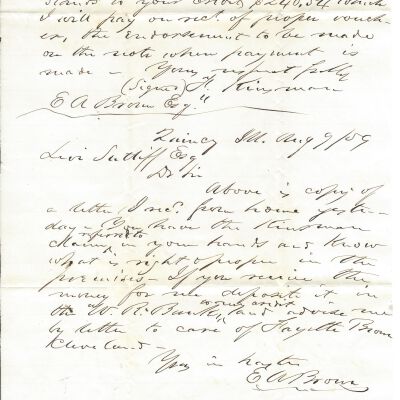 stands to your credit $240,54 which
I will pay on rect. of proper vouch-
er, the endorsement to be made
on the note when payment is
made - Yours respectfully
(Signed) Kinsman
E A Brown Esqr
Quincy Ill. Aug 9/59
Levi Sutliff Esq
Dr Sir
Above is copy of
a letter I recd. from home yester-
day - You have the Kinsman
claim referred to in your hands and know
what is right & proper in the
premises - If you receive the
money for me deposite it in
the W. R. Bank, to my credit and advise me
by letter to care of Fayette Brown
Cleveland -
Yours in haste
E A Brown